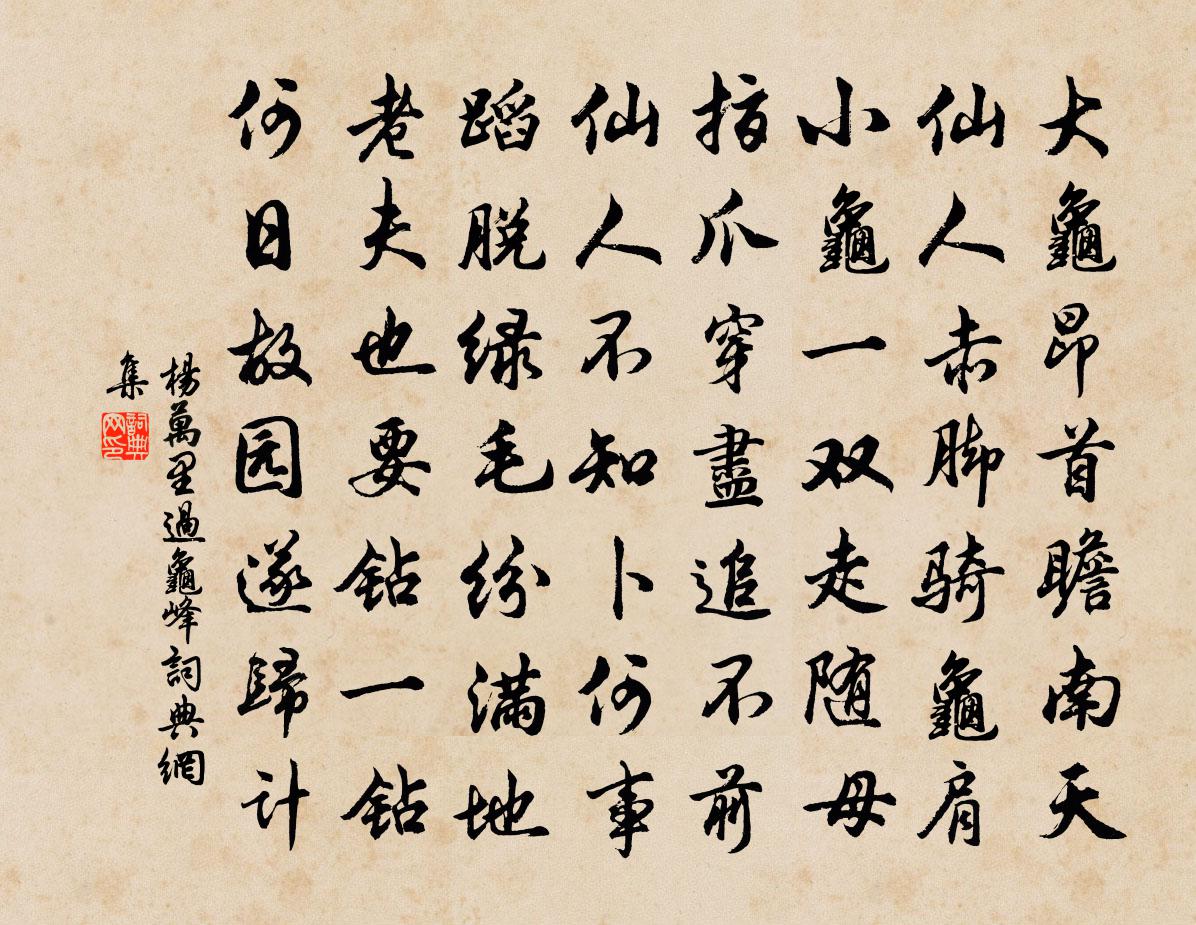 大龜昂首瞻南天
仙人赤脚骑龜肩
小龜一双走随母
指爪穿盡追不前
仙人不知卜何事
蹈脱绿毛纷满地
老夫也要钻一钻
何日故园遂歸计
楊萬里過龜峰詞典網
集
詞典
网印